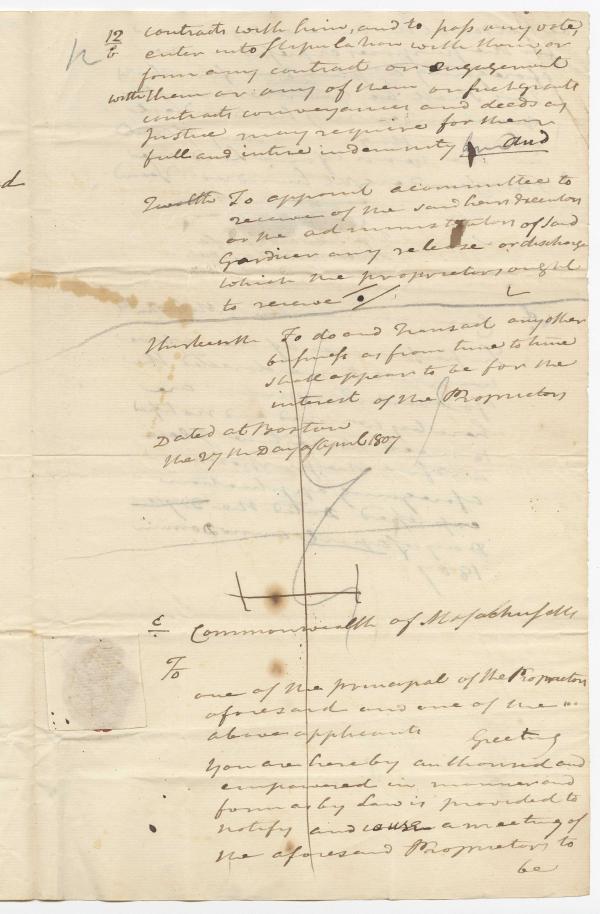 12
6
contracts with him, and to pass any vote,
enter into Stipulation with them, or
form any contract or engagement
with them or any of them or such grants
contracts conveyances and deeds as
Justice may require for their
full and intire indemnity and
d
Twelfth To appoint a committee to
receive of the said heirs Executors
or the administrators of said
Gardner any release or discharge
which the proprietors ought
to receive
Thirteenth To do and Transact any other
business as from time to time
shall appear to be for the
interest of the Proprietors
Dated at Boston
the 27th Day of April 1807
&
Commonwealth of Massachusetts
To
one of the principal of the Proprietors
aforesaid and one of the
above applicants Greeting
You are hereby authorised and
empowered in manner and
form as by Law is provided to
notify and a meeting of
the aforesaid Proprietors to
be